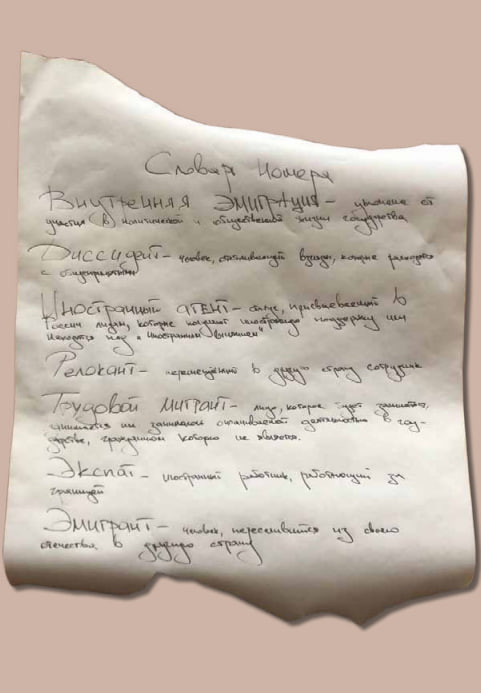 Словарь номера
Внутренняя эмиграция – уклонение от
участия в политической и общественной жизни государства
Диссидент – человек, отстаивающий взгляды, которые расходятся
с общепринятыми
Иностранный агент – статус, присваиваемый в
России лицам, которые получают иностранную поддержку или
находятся под "иностранным влиянием"
Релокант – перемещённый в другую страну сотрудник
Трудовой мигрант – лицо, которое будет заниматься,
занимается или занималось оплачиваемой деятельностью в госу-
дарстве, гражданином которого не является.
Экспат – иностранный работник, работающий за
границей
Эмигрант – человек, переселившийся из своего
отечества в другую страну